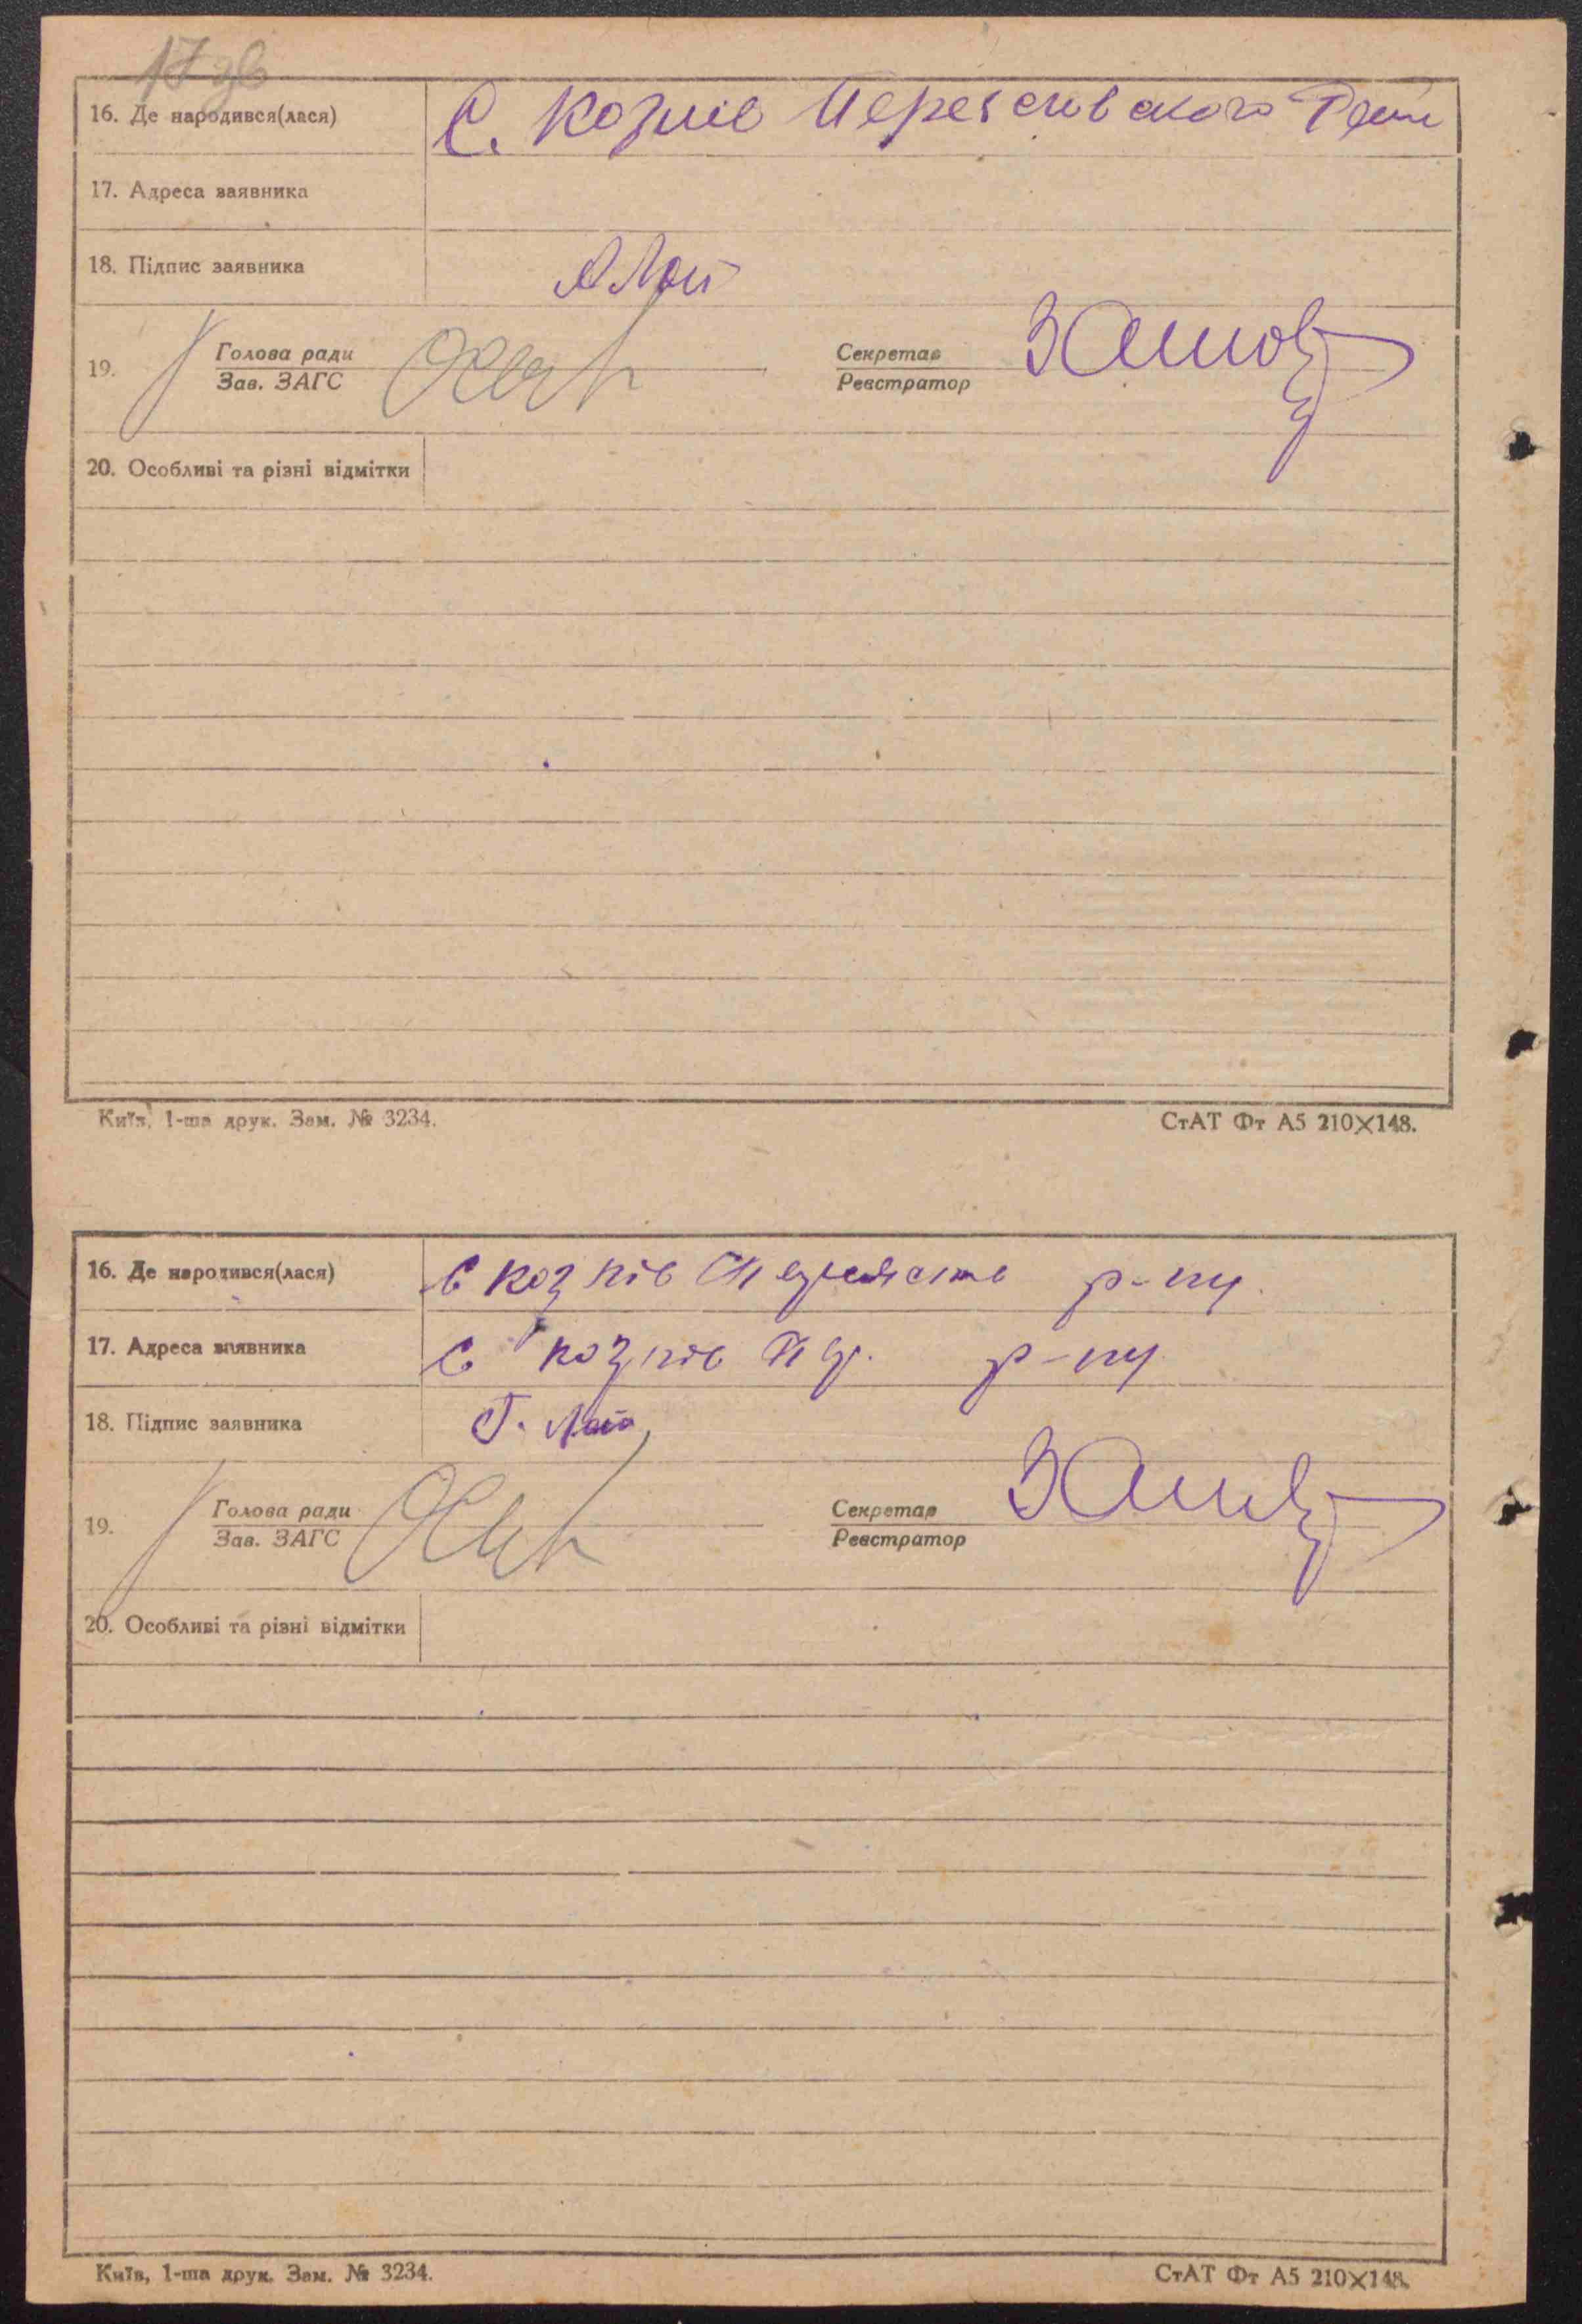 17 зв
16. Де народився(лася) С. Козлів
17. Адреса заявника
18. Підпис заявника
19. Голова ради Секретар
Зав. ЗАГС Реєстратор
20. Особливі та різні відмітки
Київ, 1-ша друк. Зам. № 3234. СтАТ Фт А5 210×148.
16. Де народився(лася) С Козлів р-ну
17. Адреса заявника С Козлів р-ну
18. Підпис заявника Г. Лой
19. Голова ради Секретар
Зав. ЗАГС Реєстратор
20. Особливі та різні відмітки
Київ, 1-ша друк. Зам. № 3234. СтАТ Фт А5 210×148.